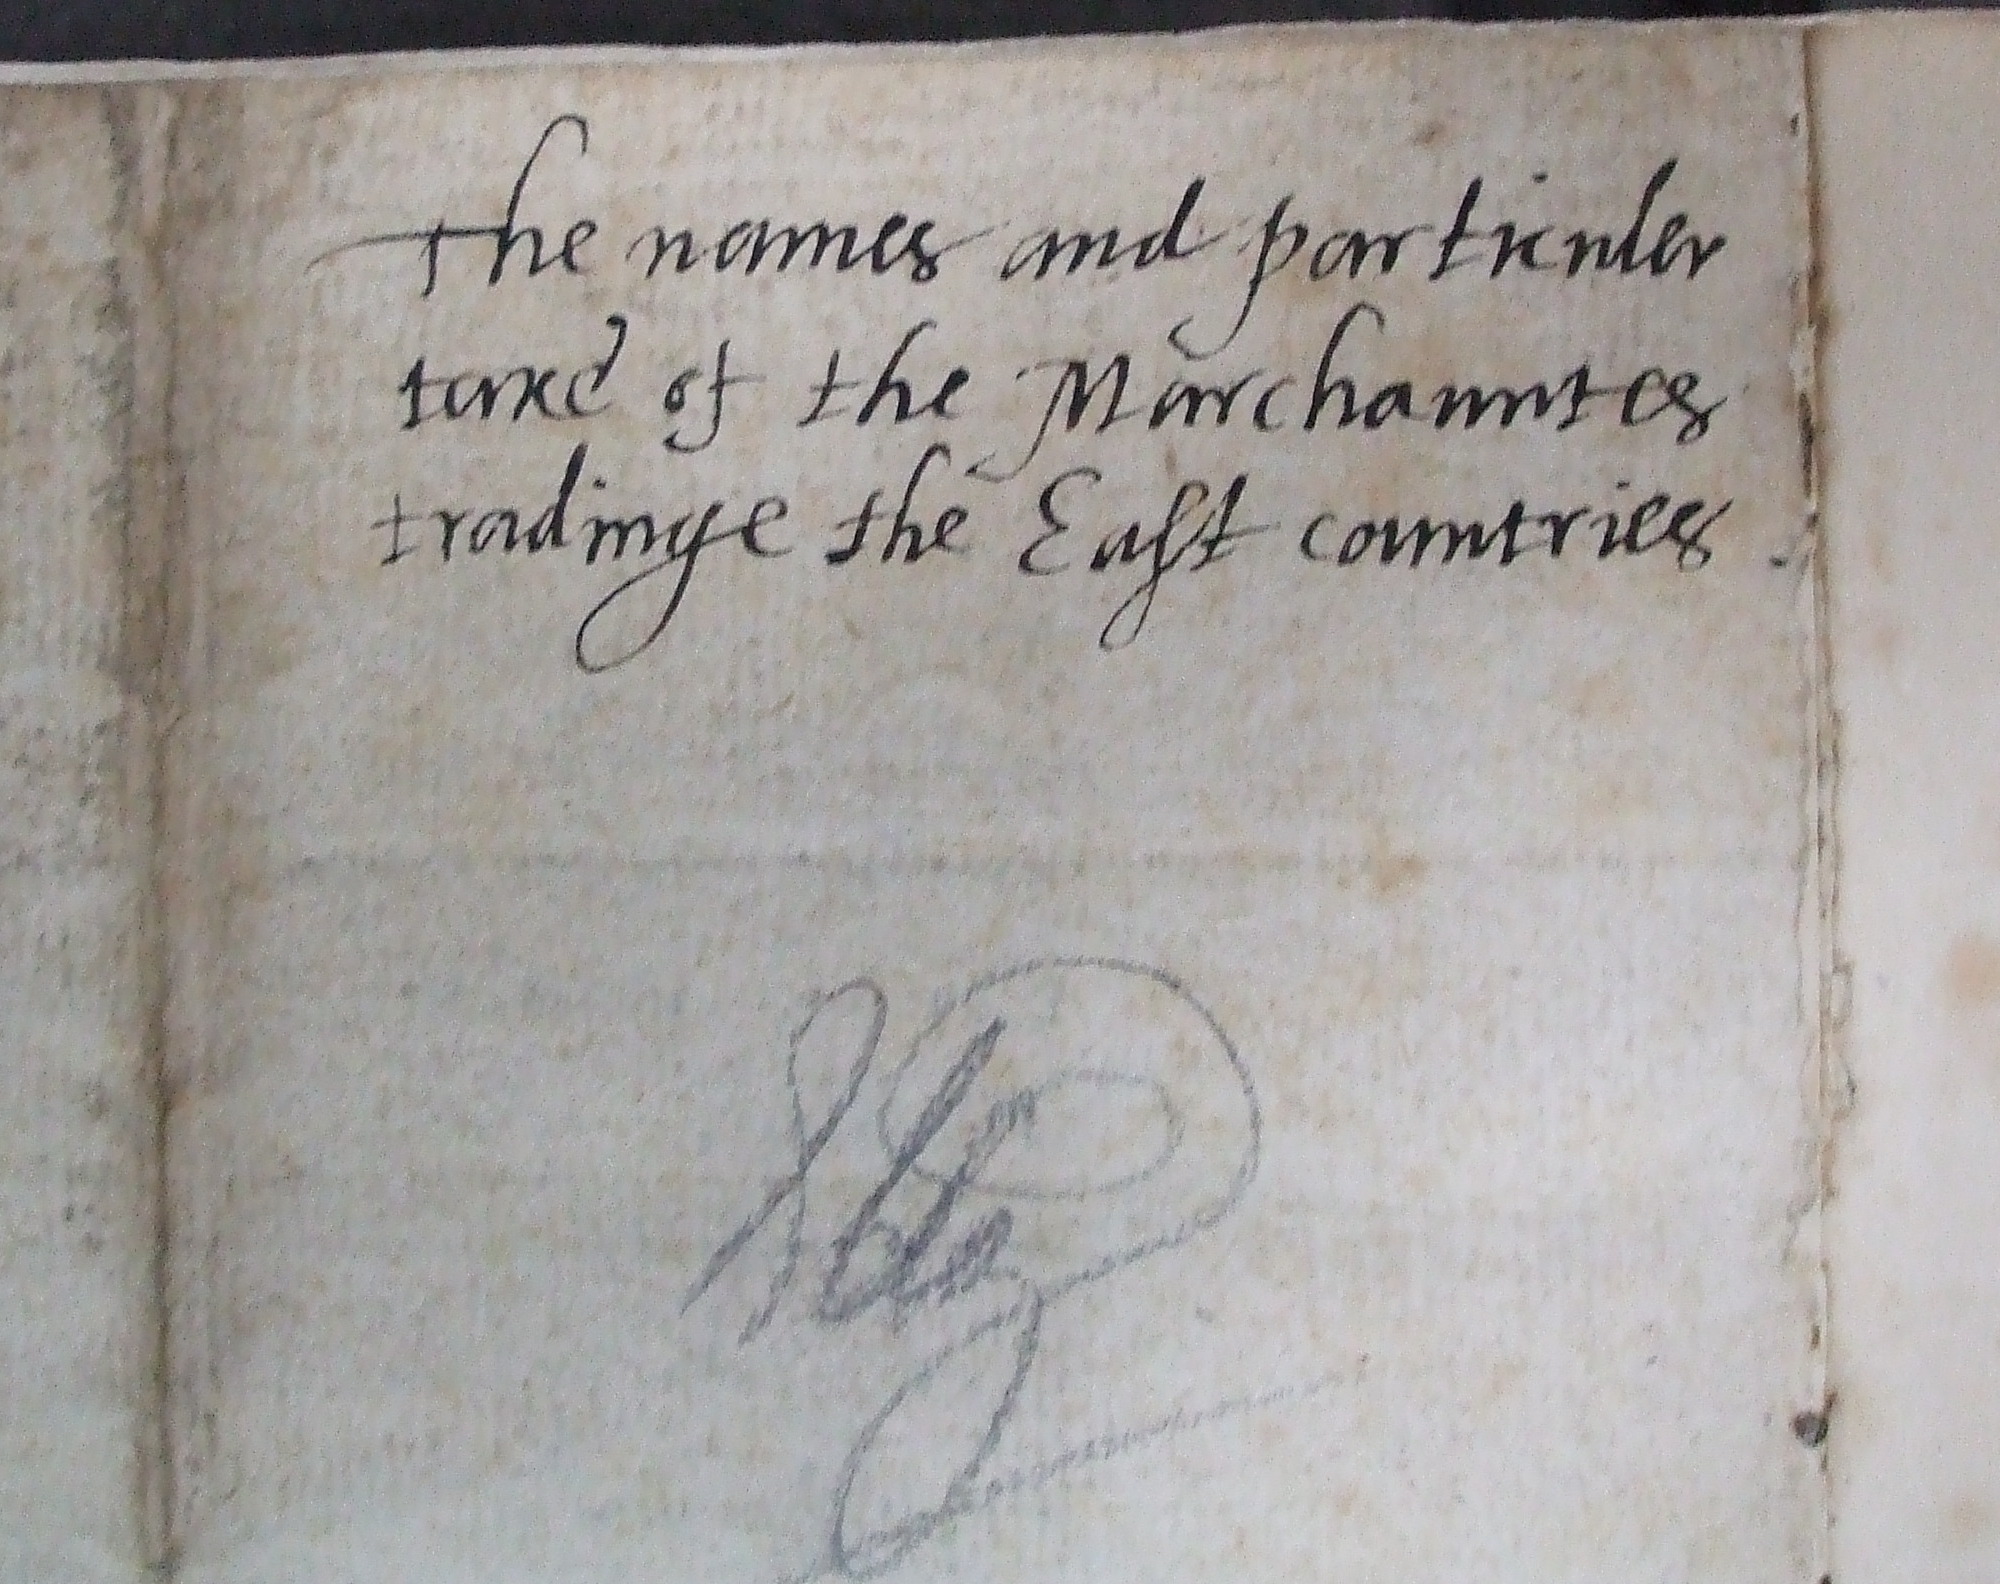 The names and particuler
taxe of the Marchauntes
tradinge the East countries.